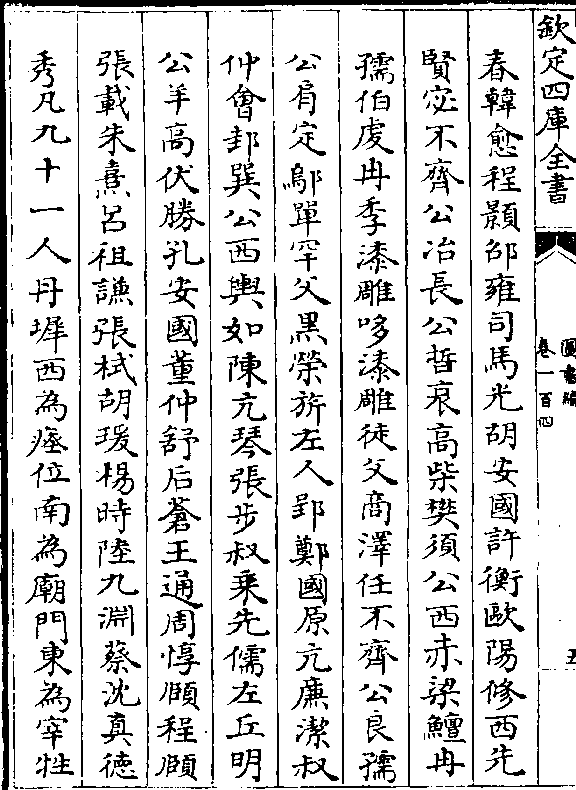 欽定四庫全書
圖書編
卷一百四
五
春韓愈程顥邵雍司馬光胡安國許衡歐陽修西先
賢宓不齊公冶長公晳哀高柴樊須公西赤梁鱣冉
孺伯虔冉季漆雕哆漆雕徒父商澤任不齊公良孺
公肩定鄔單罕父黑榮旂左人郢鄭國原亢廉潔叔
仲會邽巽公西輿如陳亢琴張步叔乗先儒左丘明
公羊高伏勝孔安國董仲舒后蒼王通周惇頤程頤
張載朱熹呂祖謙張栻胡瑗楊時陸九淵蔡沈真德
秀凡九十一人丹墀西為瘞位南為廟門東為宰牲